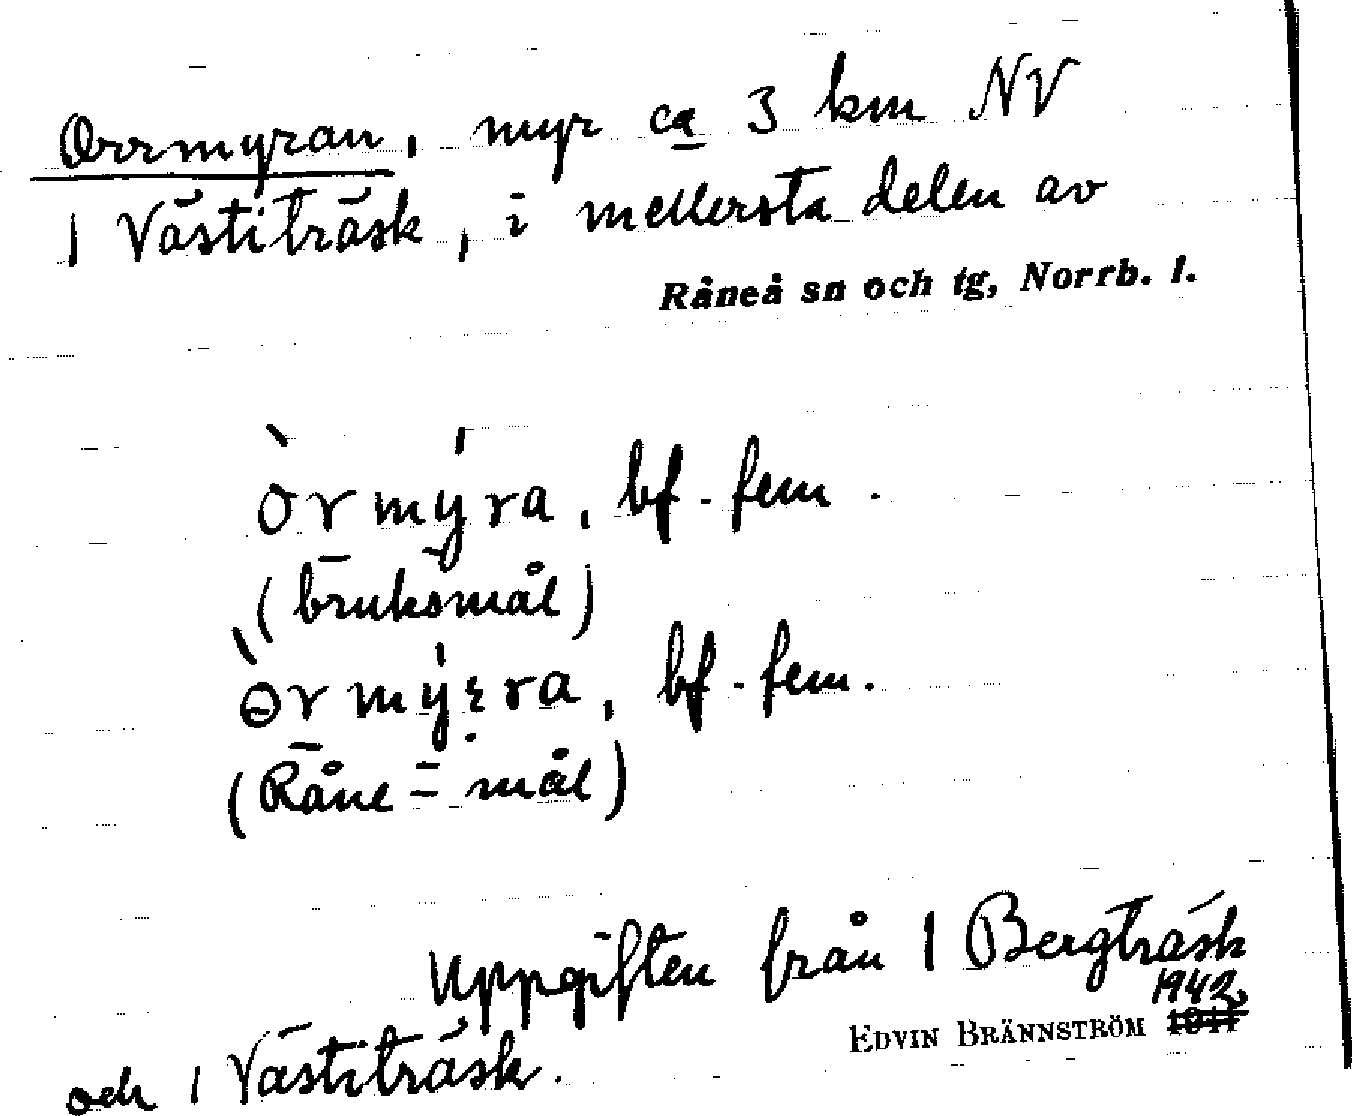 Orrmyran, myr ca 3 km NV
1 Västiträsk, i mellersta delen av
Råneå sn och tg, Norrb. l.
òrmýra, bf. fem.
(bruksmål)
ɵ̀rmýrra, bf. fem.
(Råne-mål)
Uppgiften från 1 Bergträsk
1942.
EDVIN BRÄNNSTRÖM 1941
och 1 Västiträsk.